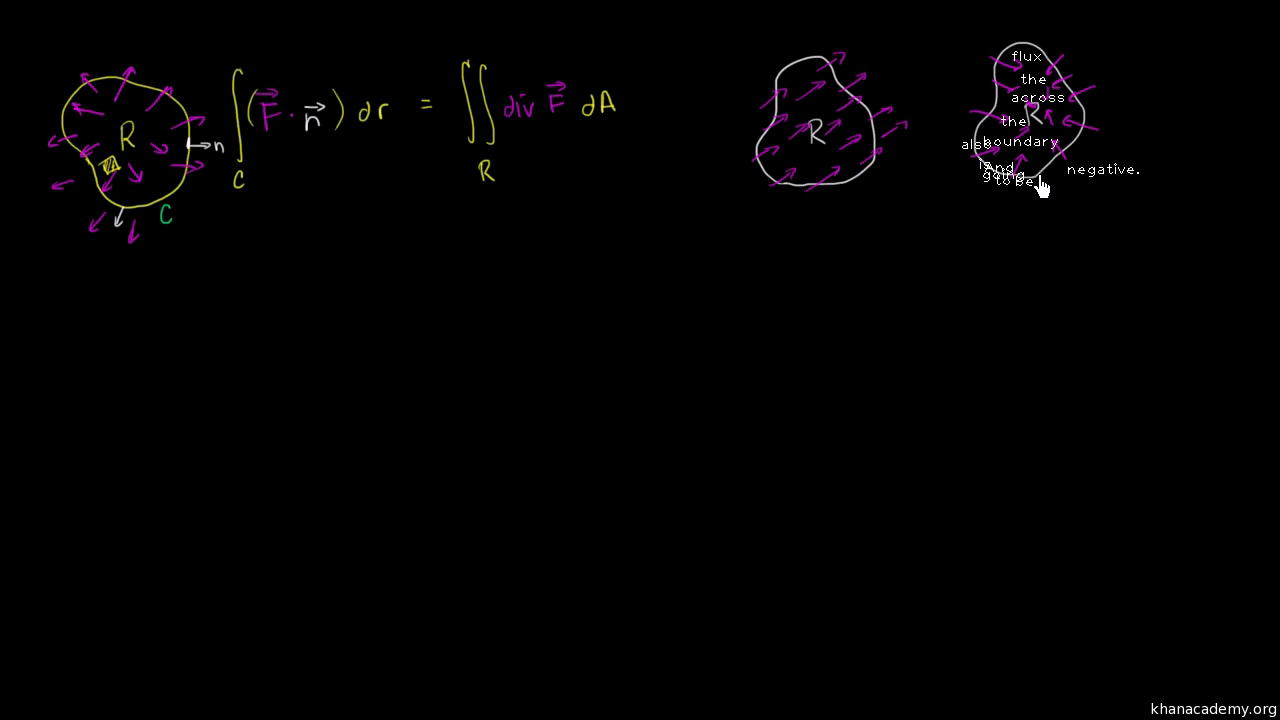 R
n
C
∫_C (F⃗ · n⃗) dr = ∬_R div F⃗ dA
R
flux
the
across
R
the
boundary
also
And
going
to be
negative.
khanacademy.org